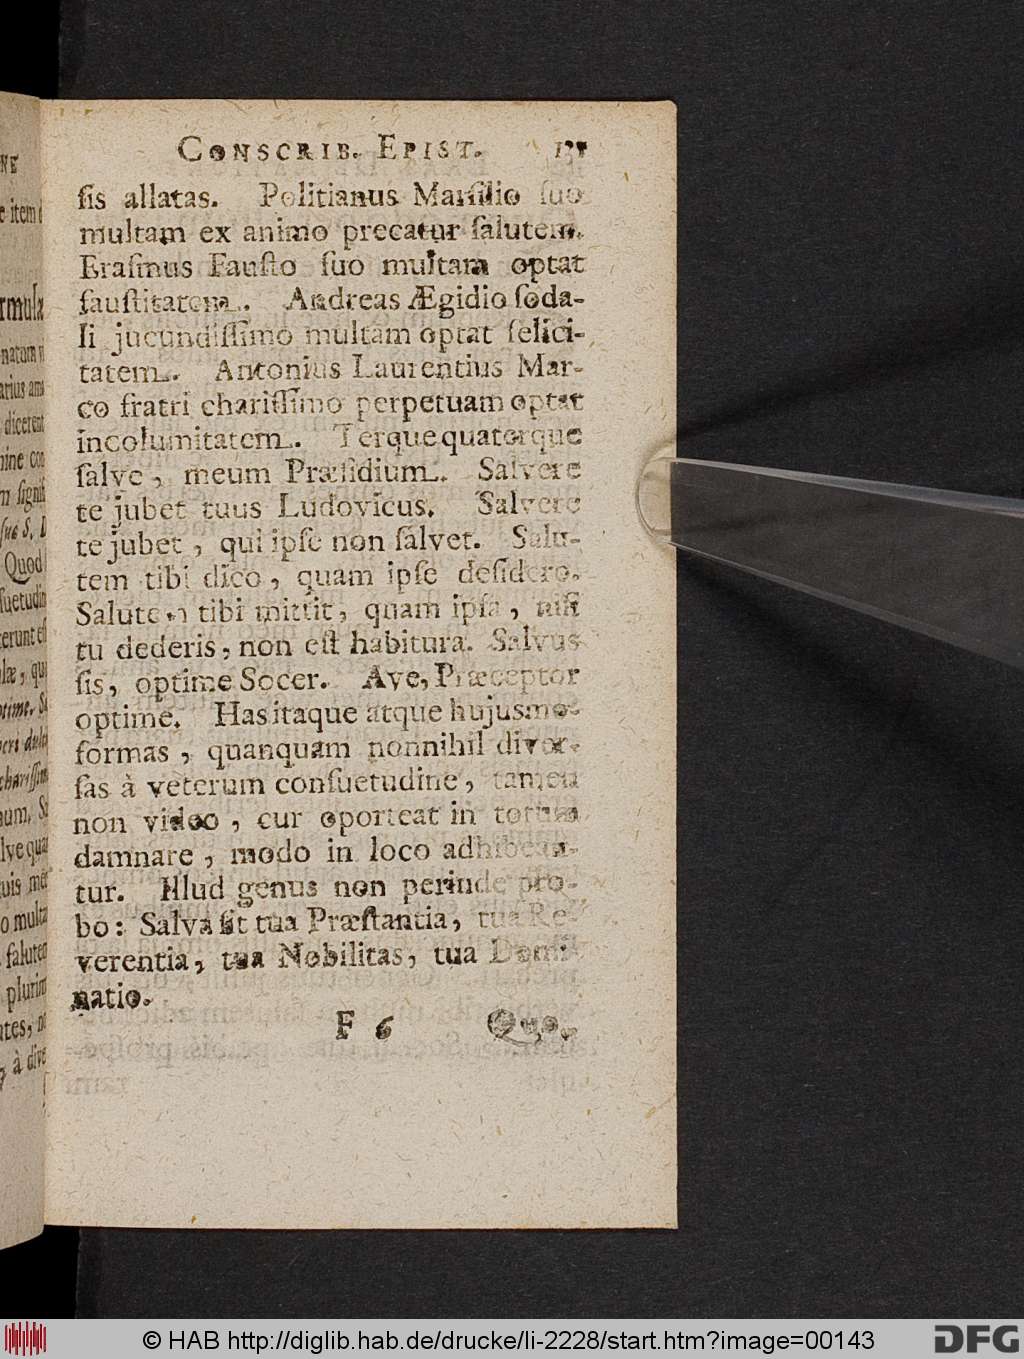 CONSCRIB. EPIST.
ſis allatas. Politianus Marſilio ſuo
multam ex animo precatur ſalutem.
Eraſmus Fauſto ſuo multam optat
fauſtitatem. Andreas Ægidio ſoda-
li jucundiſſimo multam optat felici-
tatem. Antonius Laurentius Mar-
co fratri chariſſimo perpetuam optat
incolumitatem. Terque quaterque
ſalve, meum Præſidium. Salvere
te jubet tuus Ludovicus. Salvere
te jubet, qui ipſe non ſalvet. Salu-
tem tibi dico, quam ipſe deſidero.
Salutem tibi mittit, quam ipſa, niſi
tu dederis, non eſt habitura. Salvus
ſis, optime Socer. Ave, Præceptor
optime. Has itaque atque hujusmo-
formas, quanquam nonnihil diver-
ſas à veterum conſuetudine, tamen
non video, cur oporteat in totum
damnare, modo in loco adhibean-
tur. Illud genus non perinde pro-
bo: Salva ſit tua Præſtantia, tua Re-
verentia, tua Nobilitas, tua Domi-
natio.
F 6 Quo-
© HAB http://diglib.hab.de/drucke/li-2228/start.htm?image=00143
DFG